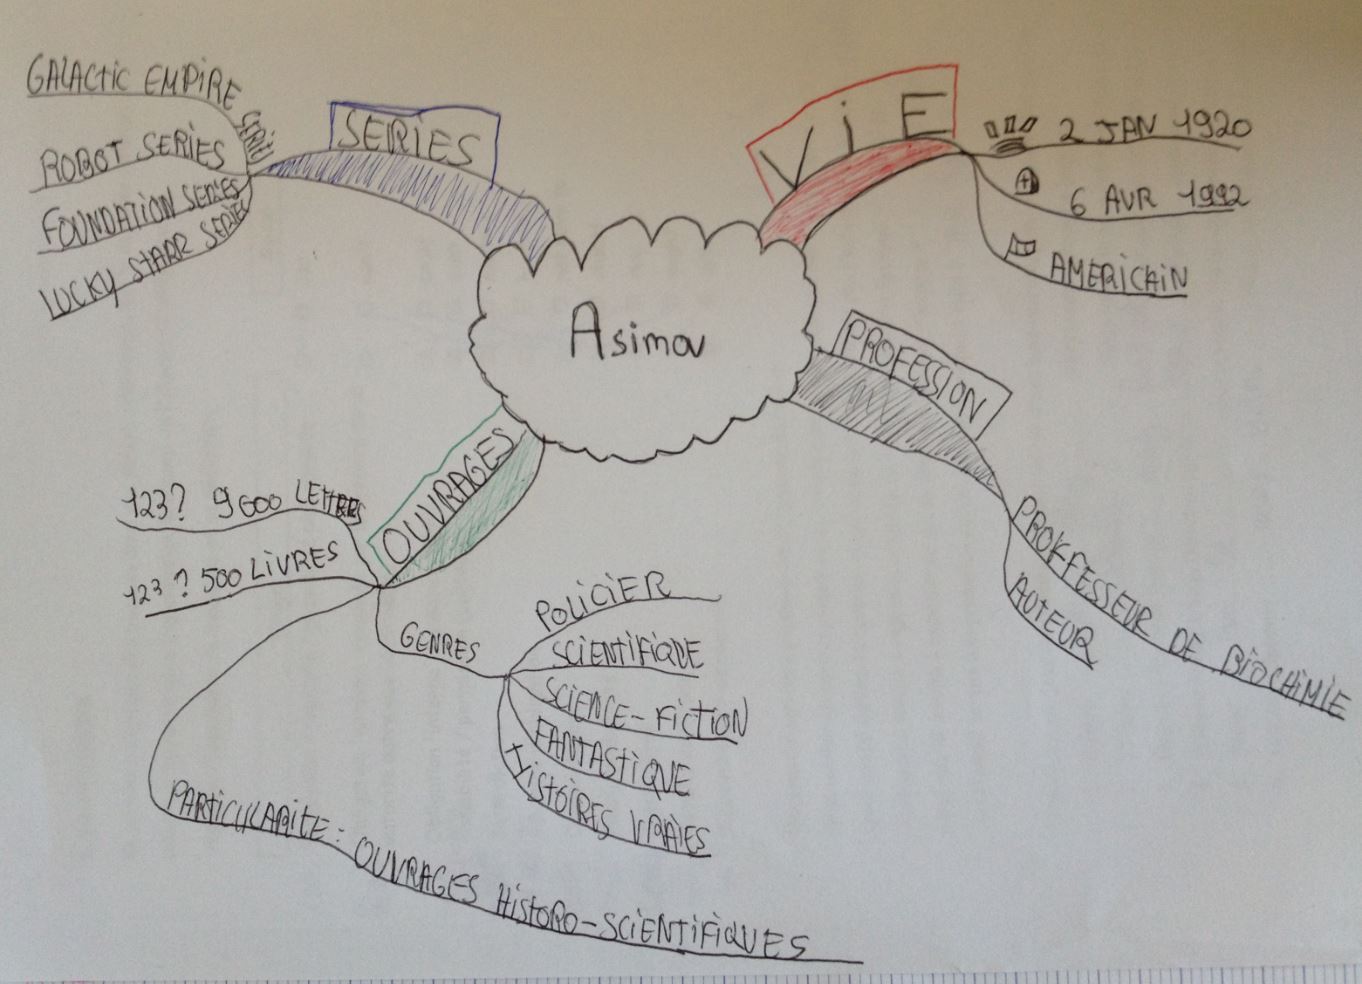 Asimov
SERIES
GALACTIC EMPIRE SERIE
ROBOT SERIES
FOUNDATION SERIES
LUCKY STARR SERIES
ViE
2 JAN 1920
6 AVR 1992
AMERICAIN
PROFESSION
PROFFESSEUR DE BIOCHIMIE
AUTEUR
OUVRAGES
123? 9000 LETTRES
123? 500 LIVRES
GENRES
POLICIER
SCIENTIFIQUE
SCIENCE-FICTION
FANTASTIQUE
HISTOIRES VRAIES
PARTICULARITE: OUVRAGES HISTORO-SCIENTIFIQUES